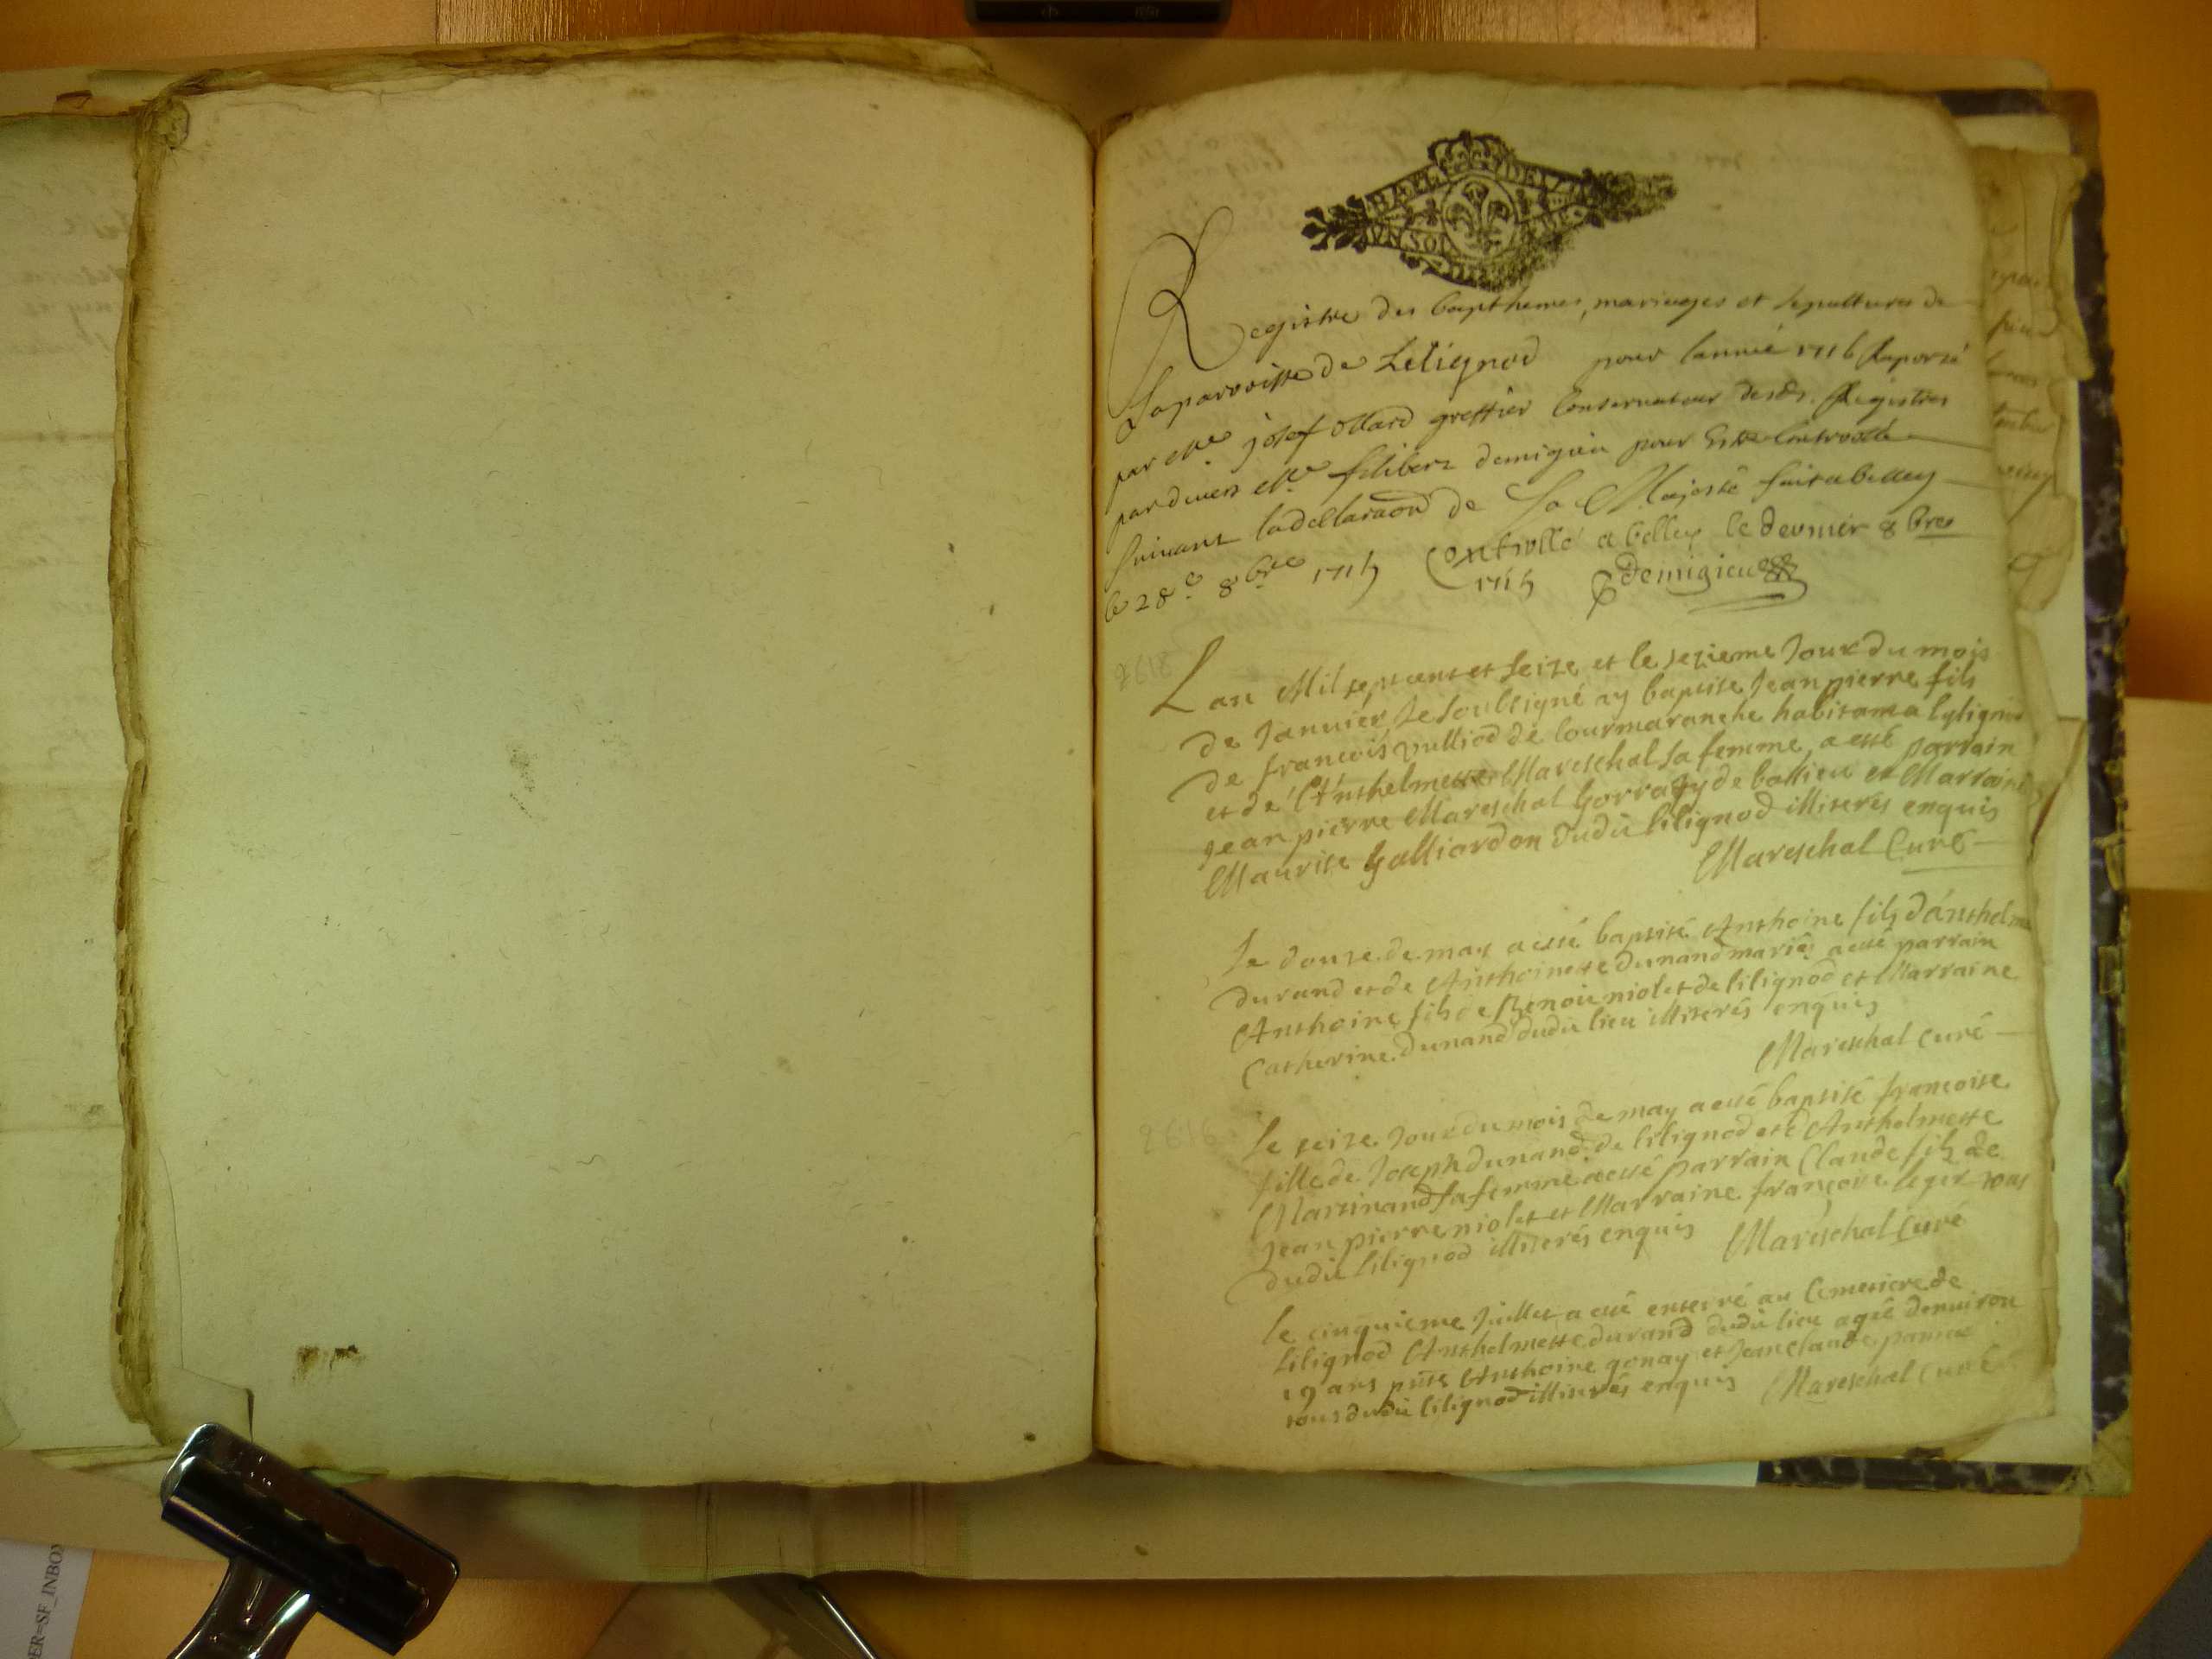 UN SOL
Registre des bapthemes, mariages et sepultures de
La parroisse de Lelignod pour lannée 1716 Raporté
par Mre josef ollard greffier Conservateur desds. Registres
pardevers Mre filibert demigieu pour Estre Controollé
suivant la declaraon de Sa Majesté fait a belley
le 28e 8bre 1715 Controllé a belley le dernier 8bre
1715 Demigieu
Lan Mil sept cent et seize et le sezieme Jour du mois
de Janvier Je soubsigné ay baptise Jean pierre fils
de francois vulliod de lourmaranche habitant a lylignod
et de Anthelmette Mareschal sa femme, a esté parrain
Jean pierre Mareschal gorraty de ballieu et Marraine
Maurise galliardon dudit lilignod illiterés enquis
Mareschal Curé
Le douze de may a esté baptisé Anthoine fils danthelme
durand et de Anthoinette dunand mariés a esté parrain
Anthoine fils de Benoit niolet de lilignod et Marraine
Catherine dunand dudit lieu illiterés enquis
Mareschal Curé
Le seize Jour du mois de may a esté baptisé francoise
fille de Joseph dunand de lilignod et d Anthelmette
Martinand sa femme a esté parrain Claude fils de
Jean pierre niolet et Marraine francoise leger tous
dudit lilignod illiterés enquis Mareschal Curé
le cinquieme Juillet a esté enterré au Cimetiere de
Lilignod Anthelmette durand dudit lieu agée denviron
19 ans pnts Anthoine gonay et Jean claude
tous dudit lilignod illiterés enquis Mareschal Curé
2616
ER=SF_INBOX